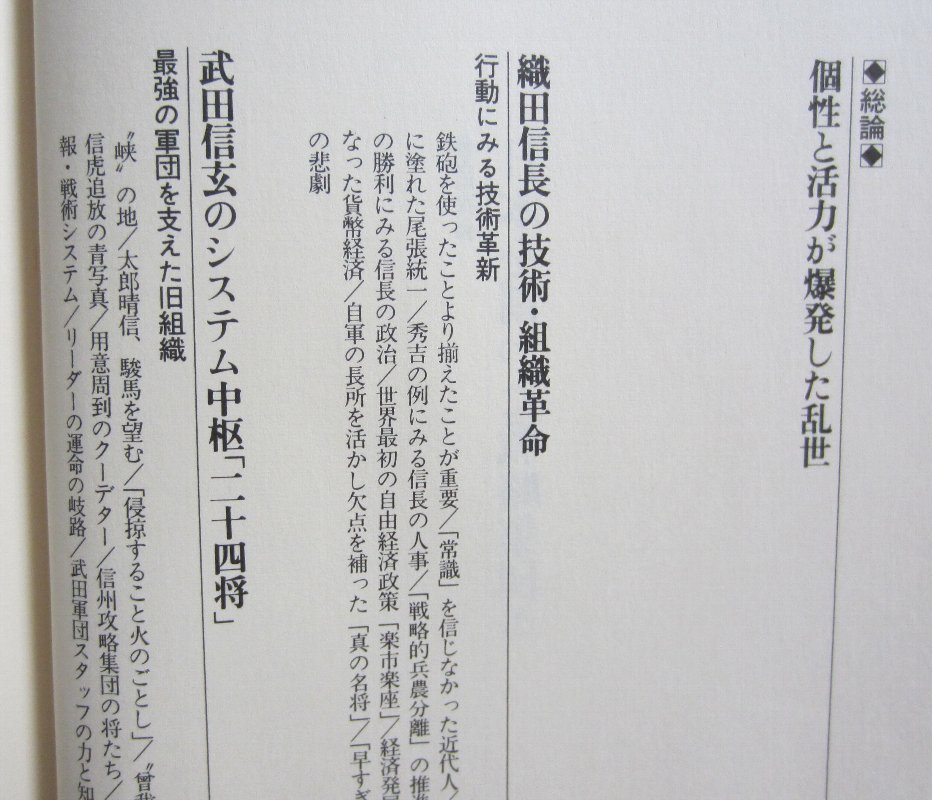 ◆総論◆
個性と活力が爆発した乱世
織田信長の技術・組織革命
行動にみる技術革新
鉄砲を使ったことより揃えたことが重要/「常識」を信じなかった近代人/
に塗れた尾張統一/秀吉の例にみる信長の人事/「戦略的兵農分離」の推進
の勝利にみる信長の政治/世界最初の自由経済政策「楽市楽座」/経済発展
なった貨幣経済/自軍の長所を活かし欠点を補った「真の名将」/「早すぎ
の悲劇
武田信玄のシステム中枢「二十四将」
最強の軍団を支えた旧組織
〝峡〟の地/太郎晴信、駿馬を望む/「侵掠すること火のごとし」/〝曾我
信虎追放の青写真/用意周到のクーデター/信州攻略集団の将たち/
報・戦術システム/リーダーの運命の岐路/武田軍団スタッフの力と知